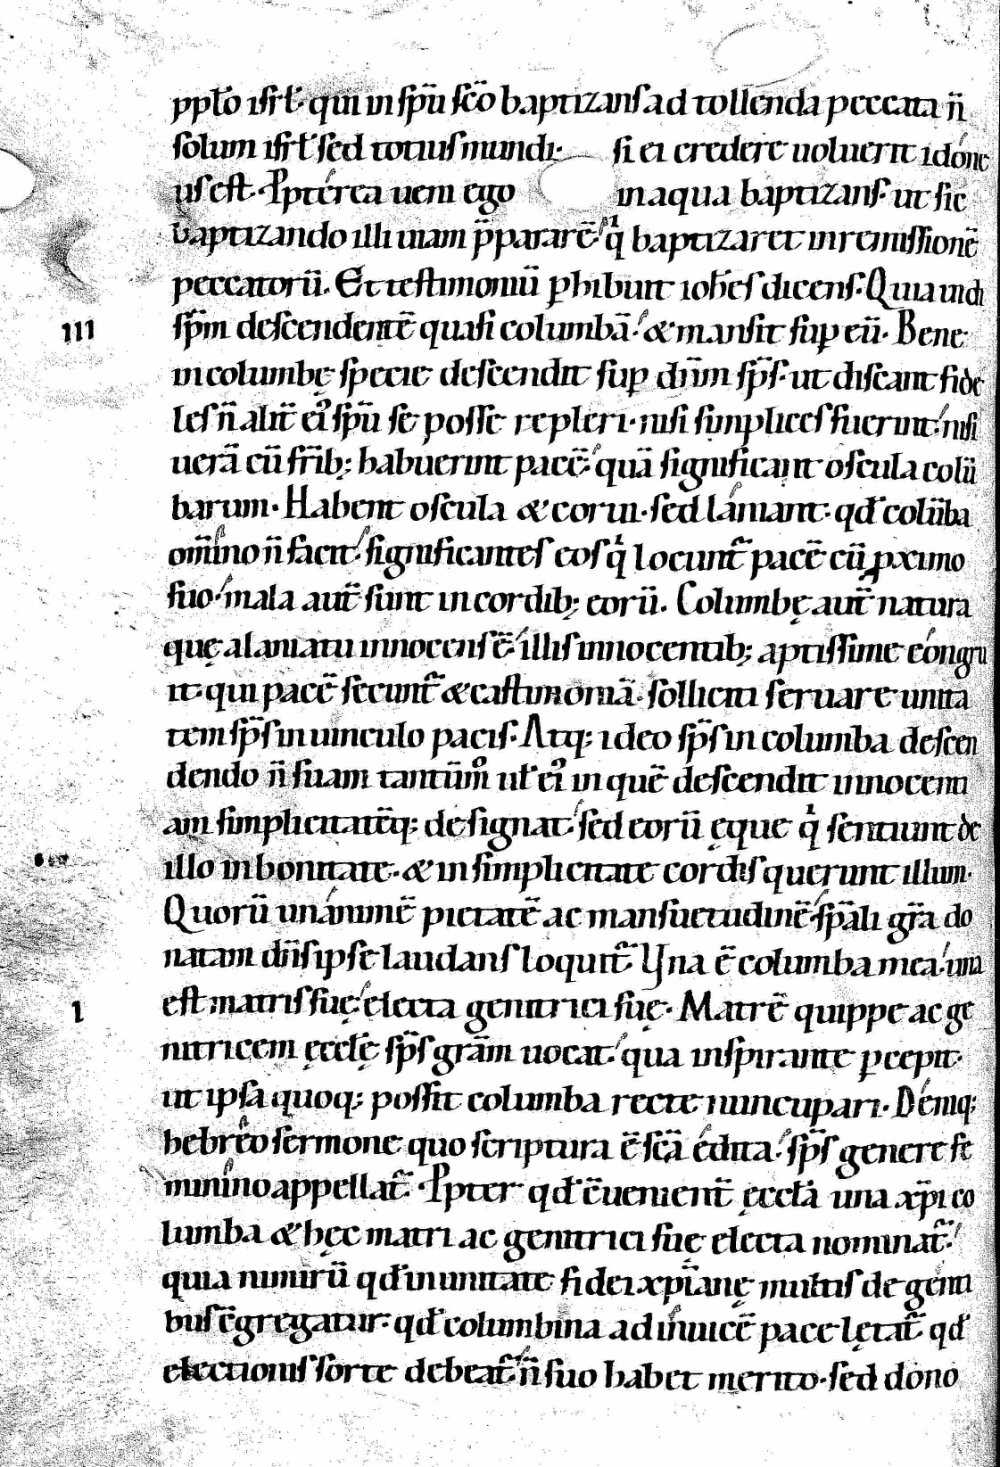 pplo isrl. qui in spu sco baptizans ad tollenda peccata n̄
solum isrl sed totius mundi. si ei credere uoluerit idone
us est. Ppterea ueni ego in aqua baptizans. ut sic
baptizando illi uiam p̄pararē. q baptizaret in remissionē
peccatorū. Et testimoniū phibuit iohes dicens. Quia uidi
III spm descendentē quasi columbā. & mansit sup eū. Bene
in columbę specie descendit sup dn̄m sps. ut discant fide
les n̄ alit ei spu se posse repleri. nisi simplices fuerint. nisi
uerā cū frib; habuerint pacē. quā significant oscula colū
barum. Habent oscula & corui. sed laniant. qd colūba
omino n̄ facit. significantes eos q locunt pacē cū pximo
suo. mala aut sunt in cordib; eorū. Columbę aut natura
quę a laniatu innocens ē. illis innocentib; aptissime congru
it. qui pacē secunt & castimoniā. solliciti seruare unita
tem sps in uinculo pacis. Atq; ideo sps in columba descen
dendo n̄ suam tantūm ul ei in quē descendit innocenti
am simplicitatēq; designat. sed eorū ęque q sentiunt de
illo in bonitate. & in simplicitate cordis querunt illum.
Quorū unanimē pietatē ac mansuetudinē. spali gra do
natam dn̄s ipse laudans loquit. Vna ē columba mea. una
I est matris suę. electa genitrici suę. Matrē quippe ac ge
nitricem ęcclę sps gram uocat. qua inspirante pcepit.
ut ipsa quoq; possit columba recte nuncupari. Deniq;
hebreo sermone quo scriptura ē scā edita. sps genere fe
minino appellat. Ppter qd cuenient ęccla una xpi co
lumba & hęc matri ac genitrici suę electa nominat.
quia nimirū qd in unitate fidei xpianę multis de genti
bus cgregatur. qd columbina ad inuicē pace lętat. qd
electionis sorte debeat. n̄ suo habet merito. sed dono